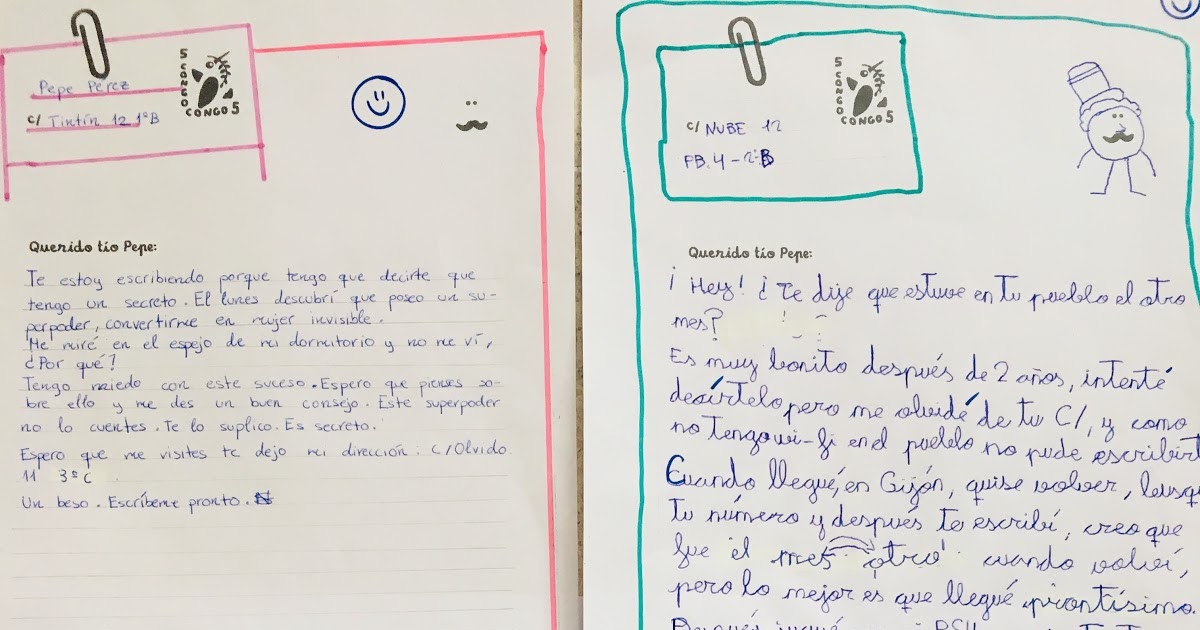 Pepe Pérez
c/ Tintín 12 1ºB
5 CONGO
CONGO 5
Querido tío Pepe:
Te estoy escribiendo porque tengo que decirte que
tengo un secreto. El lunes descubrí que poseo un su-
perpoder, convertirme en mujer invisible.
Me miré en el espejo de mi dormitorio y no me ví,
¿Por qué?
Tengo miedo con este suceso. Espero que pienses so-
bre ello y me des un buen consejo. Este superpoder
no lo cuentes. Te lo suplico. Es secreto.
Espero que me visites te dejo mi dirección: C/Olvido
11 3º C
Un beso. Escríbeme pronto.
5 CONGO
CONGO 5
c/ NUBE 12
PB. 4 - 2ºB
Querido tío Pepe:
¡Hey! ¿Te dije que estuve en tu pueblo el otro
mes?
Es muy bonito después de 2 años, intenté
decírtelo pero me olvidé de tu C/, y como
no tengo wi-fi en el pueblo no pude escribirt
Cuando llegué, en Gijón, quise volver, busqu
tu número y después te escribí, creo que
fue el mes otro cuando volví,
pero lo mejor es que llegué prontísimo.
Después